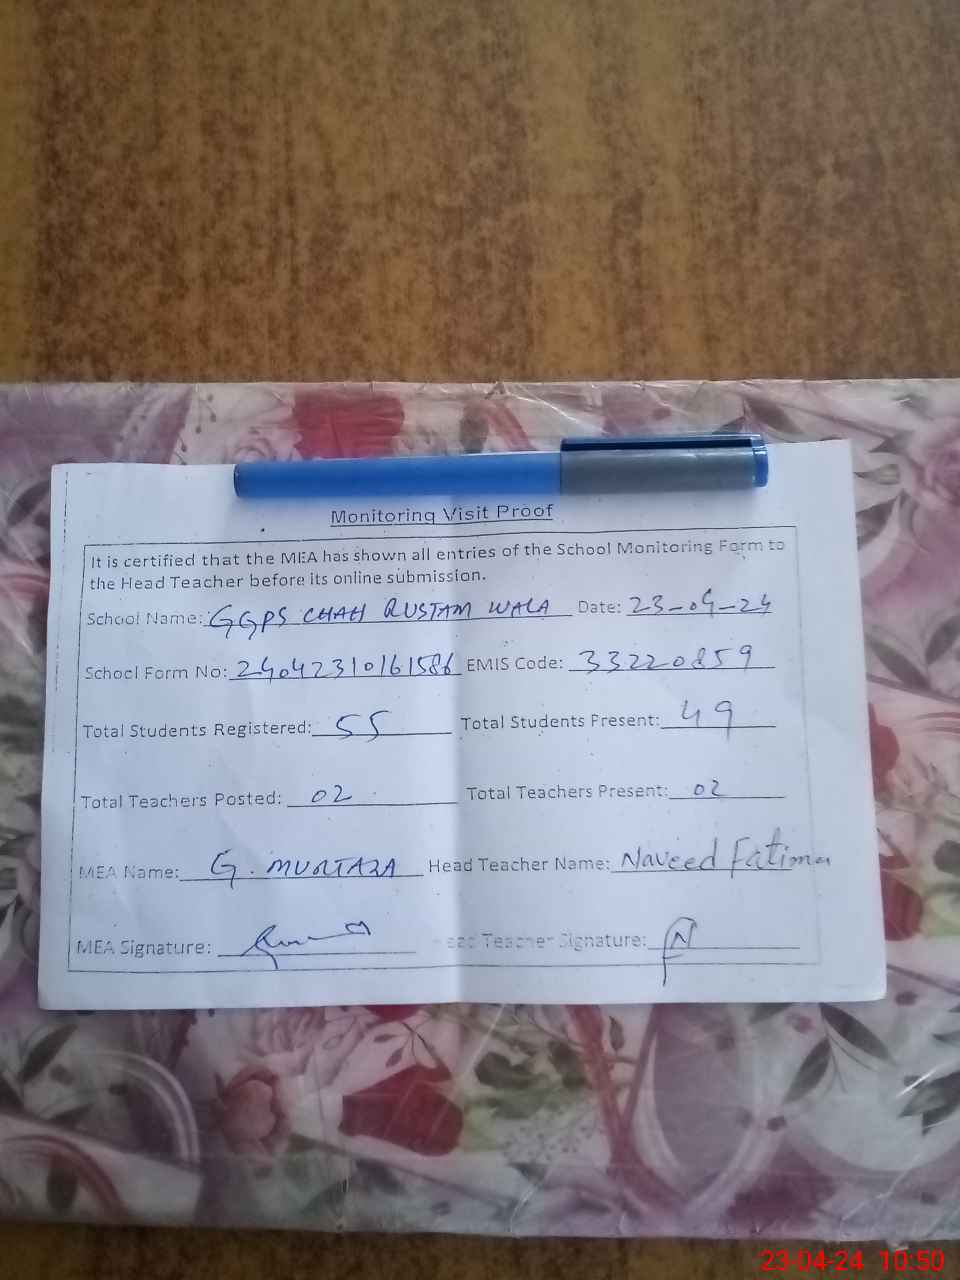 Monitoring Visit Proof
It is certified that the MEA has shown all entries of the School Monitoring Form to
the Head Teacher before its online submission.
School Name: GGPS CHAH RUSTAM WALA Date: 23-04-24
School Form No: 24042310161586 EMIS Code: 33220859
Total Students Registered: 55 Total Students Present: 49
Total Teachers Posted: 02 Total Teachers Present: 02
MEA Name: G. MURTAZA Head Teacher Name: Naveed Fatima
MEA Signature: Head Teacher Signature: N
23-04-24 10:50